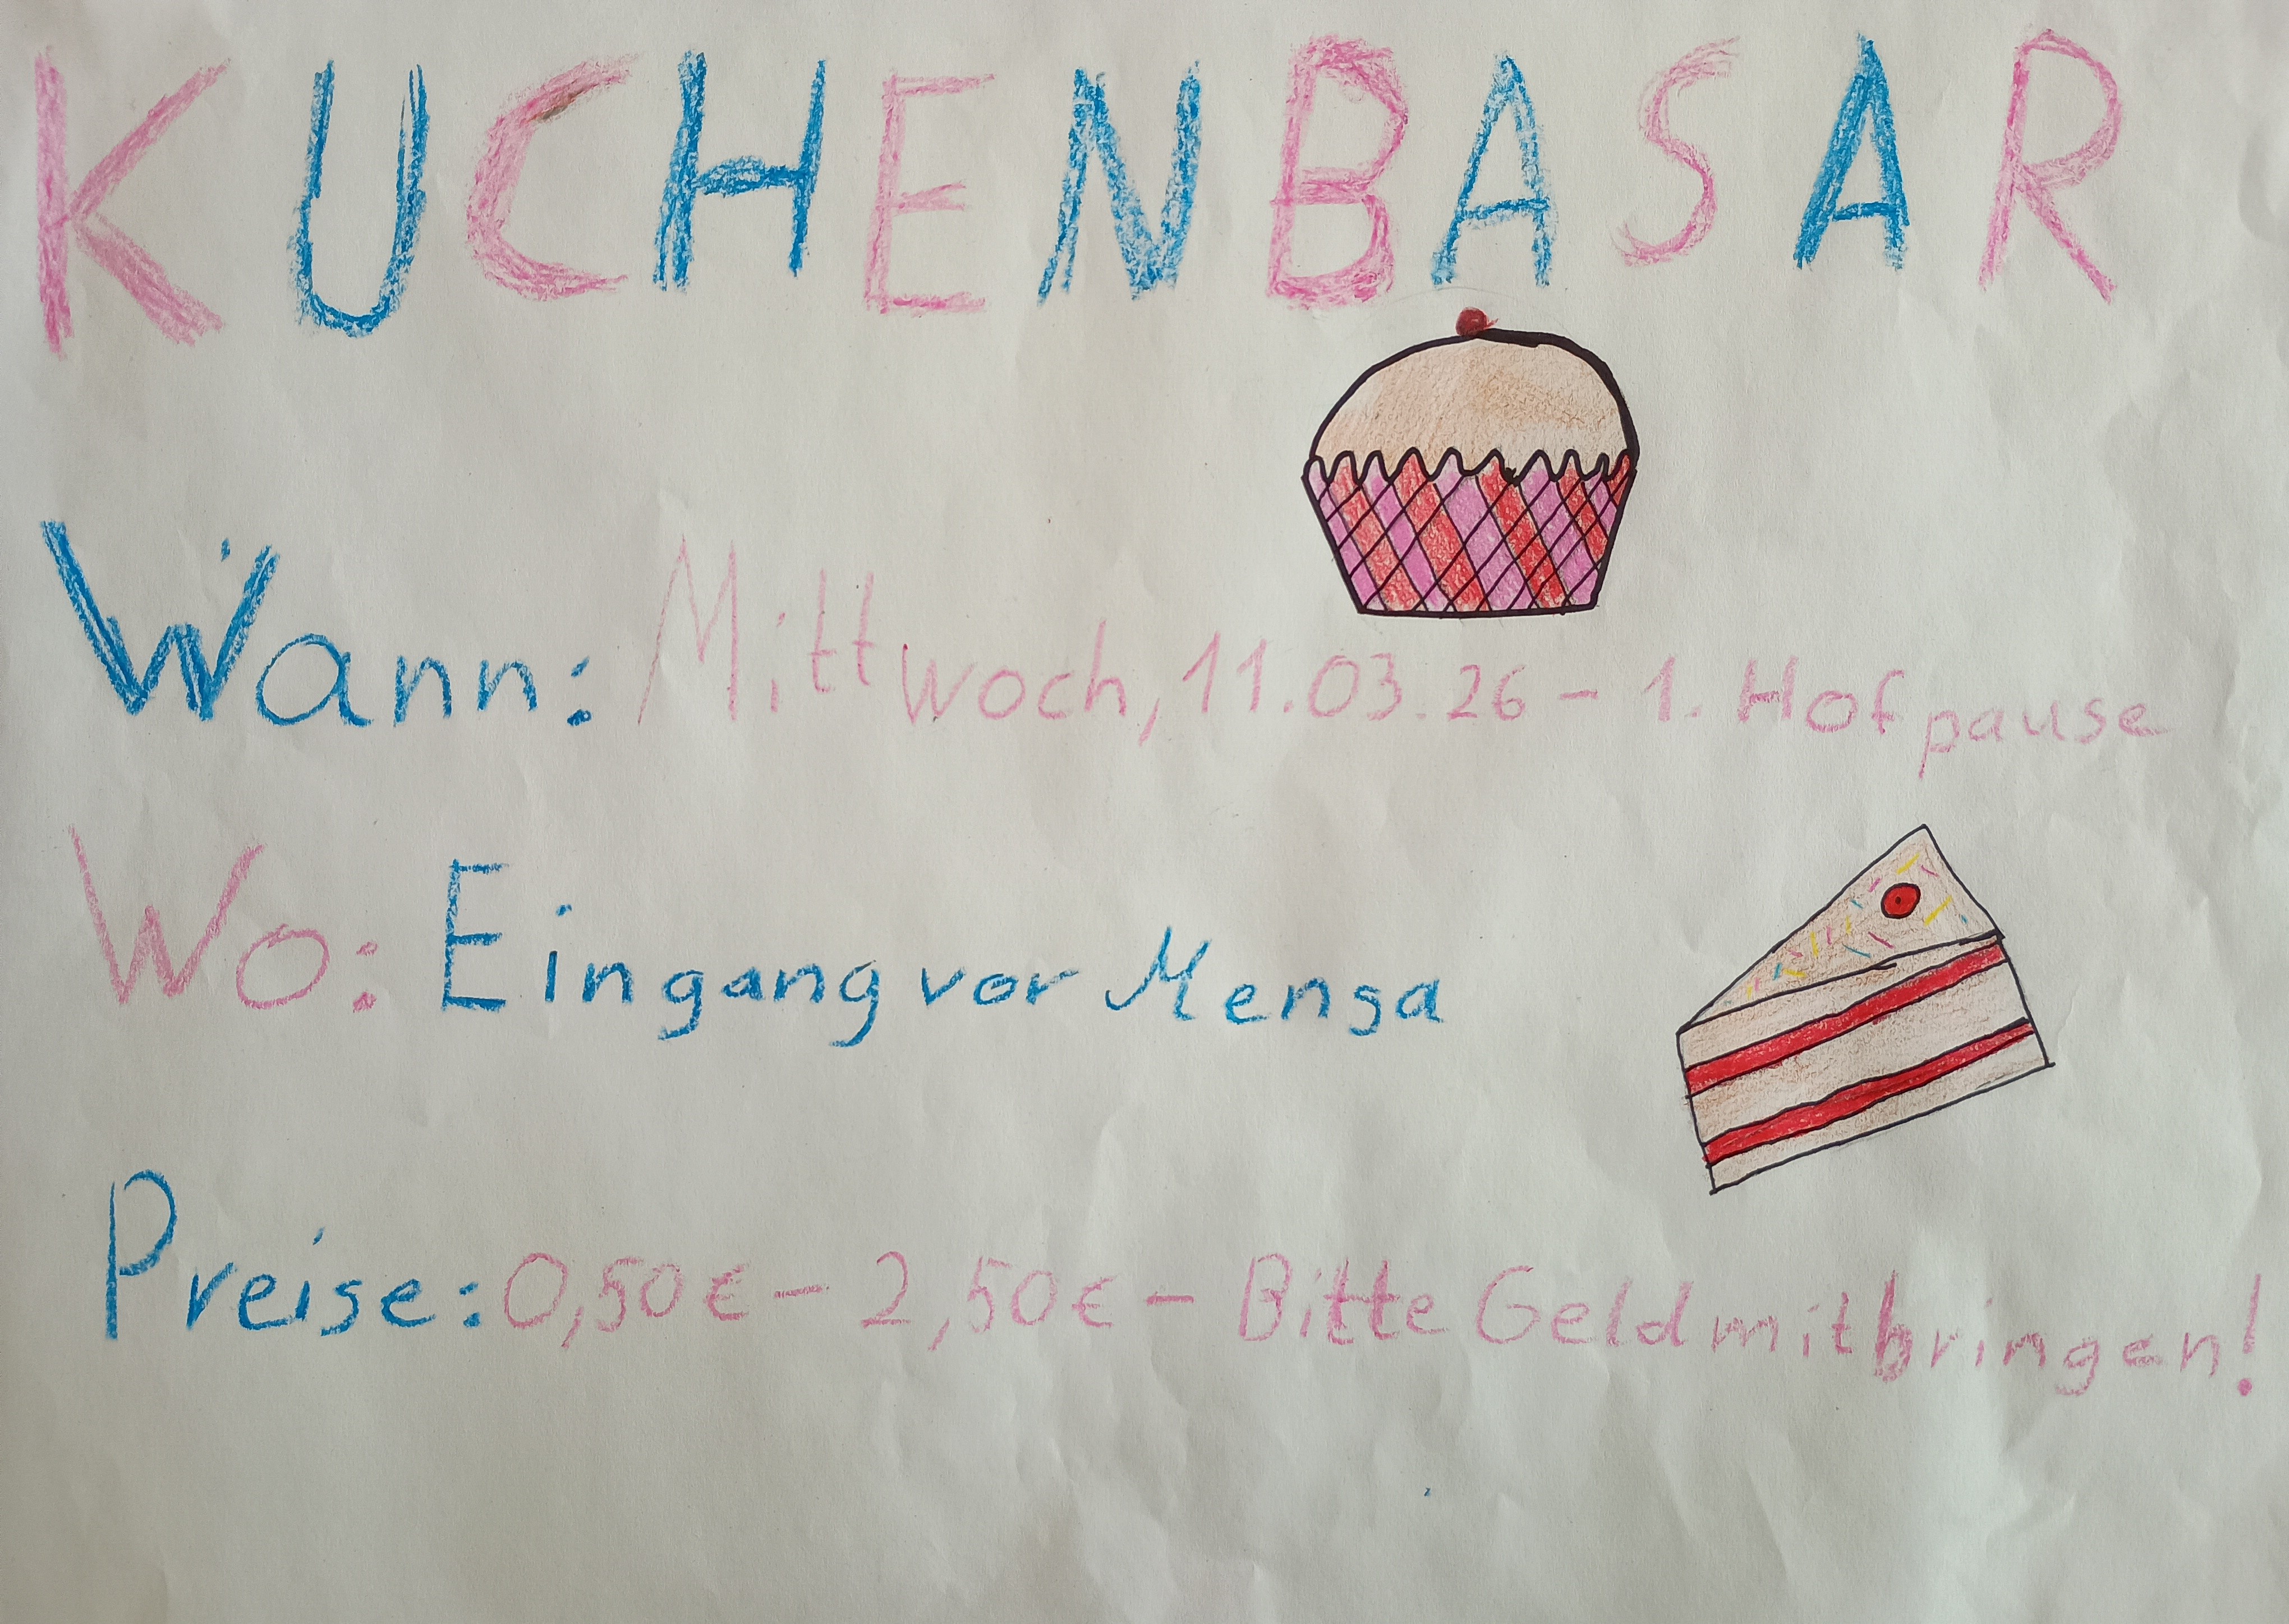 KUCHENBASAR
Wann: Mittwoch, 11.03.26 - 1. Hofpause
Wo: Eingang vor Mensa
Preise: 0,50€ - 2,50€ - Bitte Geld mitbringen!